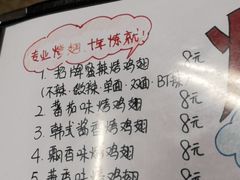 专业烤翅 十年炼就!
1. 招牌蜜辣烤鸡翅 8元
(不辣·微辣·单面·双面·BT辣)
2. 番茄味烤鸡翅 8元
3. 韩式酱香烤鸡翅 8元
4. 飘香味烤鸡翅 8元
5. 香味烤鸡翅 8元